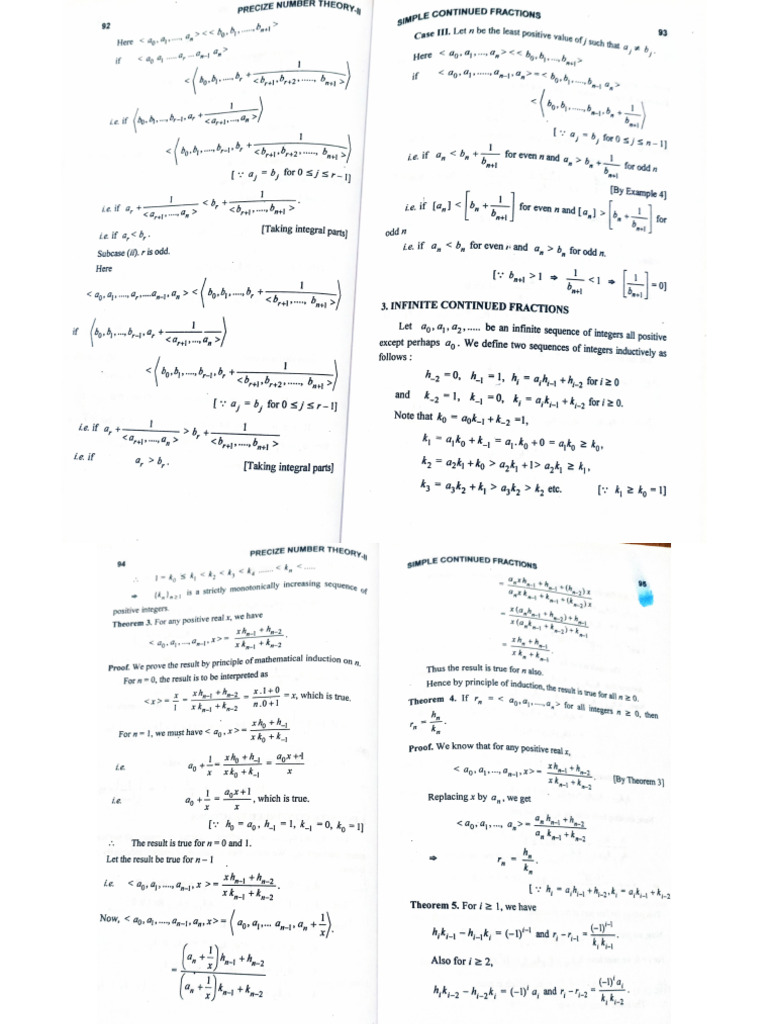 92
PRECIZE NUMBER THEORY-II
Here < a₀, a₁, ...., aₙ > << b₀, b₁, ....., bₙ₊₁ >
if < a₀ a₁ ..... aᵣ ... aₙ₋₁ aₙ >
< ⟨ b₀, b₁, ...., bᵣ + 1/<bᵣ₊₁, bᵣ₊₂, ......, bₙ₊₁> ⟩
i.e. if ⟨ b₀, b₁, ..., bᵣ₋₁, aᵣ + 1/<aᵣ₊₁, ...., aₙ> ⟩
< ⟨ b₀, b₁, ...., bᵣ₋₁, bᵣ + 1/<bᵣ₊₁, bᵣ₊₂, ......, bₙ₊₁> ⟩
[∵ aⱼ = bⱼ for 0 ≤ j ≤ r−1]
i.e. if aᵣ + 1/<aᵣ₊₁, ...., aₙ> < bᵣ + 1/<bᵣ₊₁, ....., bₙ₊₁>.
i.e. if aᵣ < bᵣ. [Taking integral parts]
Subcase (ii). r is odd.
Here
< a₀, a₁, ...., aᵣ, .....aₙ₋₁, aₙ > < ⟨ b₀, b₁, ...., bᵣ + 1/<bᵣ₊₁, ......, bₙ₊₁> ⟩
if ⟨ b₀, b₁, ..., bᵣ₋₁, aᵣ + 1/<aᵣ₊₁, ..., aₙ> ⟩
< ⟨ b₀, b₁, ..., bᵣ₋₁, bᵣ + 1/<bᵣ₊₁, bᵣ₊₂, ......, bₙ₊₁> ⟩
[∵ aⱼ = bⱼ for 0 ≤ j ≤ r−1]
i.e. if aᵣ + 1/<aᵣ₊₁, ...., aₙ> > bᵣ + 1/<bᵣ₊₁, ...., bₙ₊₁>
i.e. if aᵣ > bᵣ. [Taking integral parts]
SIMPLE CONTINUED FRACTIONS
93
Case III. Let n be the least positive value of j such that aⱼ ≠ bⱼ.
Here < a₀, a₁, ...., aₙ > << b₀, b₁, ...., bₙ₊₁ >
if < a₀, a₁, ......, aₙ₋₁, aₙ > = < b₀, b₁, ...., bₙ₋₁ aₙ >
< ⟨ b₀, b₁, ......, bₙ₋₁, bₙ + 1/bₙ₊₁ ⟩
[∵ aⱼ = bⱼ for 0 ≤ j ≤ n−1]
i.e. if aₙ < bₙ + 1/bₙ₊₁ for even n and aₙ > bₙ + 1/bₙ₊₁ for odd n
[By Example 4]
i.e. if [aₙ] < [bₙ + 1/bₙ₊₁] for even n and [aₙ] > [bₙ + 1/bₙ₊₁] for
odd n
i.e. if aₙ < bₙ for even n and aₙ > bₙ for odd n.
[∵ bₙ₊₁ > 1 ⇒ 1/bₙ₊₁ < 1 ⇒ [1/bₙ₊₁] = 0]
3. INFINITE CONTINUED FRACTIONS
Let a₀, a₁, a₂, ..... be an infinite sequence of integers all positive
except perhaps a₀. We define two sequences of integers inductively as
follows :
h₋₂ = 0, h₋₁ = 1, hᵢ = aᵢhᵢ₋₁ + hᵢ₋₂ for i ≥ 0
and k₋₂ = 1, k₋₁ = 0, kᵢ = aᵢkᵢ₋₁ + kᵢ₋₂ for i ≥ 0.
Note that k₀ = a₀k₋₁ + k₋₂ = 1,
k₁ = a₁k₀ + k₋₁ = a₁.k₀ + 0 = a₁k₀ ≥ k₀,
k₂ = a₂k₁ + k₀ > a₂k₁ + 1 > a₂k₁ ≥ k₁,
k₃ = a₃k₂ + k₁ > a₃k₂ > k₂ etc. [∵ k₁ ≥ k₀ = 1]
94
PRECIZE NUMBER THEORY-II
∴ 1 = k₀ ≤ k₁ < k₂ < k₃ < k₄ ...... < kₙ < .....
⇒ (kₙ)ₙ≥₁ is a strictly monotonically increasing sequence of
positive integers.
Theorem 3. For any positive real x, we have
< a₀, a₁, ...., aₙ₋₁, x > = (xhₙ₋₁ + hₙ₋₂)/(xkₙ₋₁ + kₙ₋₂).
Proof. We prove the result by principle of mathematical induction on n.
For n = 0, the result is to be interpreted as
<x> = x/1 = (xhₙ₋₁ + hₙ₋₂)/(xkₙ₋₁ + kₙ₋₂) = (x.1+0)/(n.0+1) = x, which is true.
For n = 1, we must have < a₀, x > = (xh₀ + h₋₁)/(xk₀ + k₋₁)
i.e. a₀ + 1/x = (xh₀ + h₋₁)/(xk₀ + k₋₁) = (a₀x+1)/x
i.e. a₀ + 1/x = (a₀x+1)/x, which is true.
[∵ h₀ = a₀, h₋₁ = 1, k₋₁ = 0, k₀ = 1]
∴ The result is true for n = 0 and 1.
Let the result be true for n − 1
i.e. < a₀, a₁, ...., aₙ₋₁, x > = (xhₙ₋₁ + hₙ₋₂)/(xkₙ₋₁ + kₙ₋₂).
Now, < a₀, a₁, ...., aₙ₋₁, aₙ, x > = ⟨ a₀, a₁, ... aₙ₋₁, aₙ + 1/x ⟩.
= ((aₙ + 1/x)hₙ₋₁ + hₙ₋₂)/((aₙ + 1/x)kₙ₋₁ + kₙ₋₂)
SIMPLE CONTINUED FRACTIONS
95
= (aₙxhₙ₋₁ + hₙ₋₁ + (hₙ₋₂)x)/(aₙxkₙ₋₁ + kₙ₋₁ + (kₙ₋₂)x)
= (x(aₙhₙ₋₁ + hₙ₋₂) + hₙ₋₁)/(x(aₙkₙ₋₁ + kₙ₋₂) + kₙ₋₁)
= (xhₙ + hₙ₋₁)/(xkₙ + kₙ₋₁)
Thus the result is true for n also.
Hence by principle of induction, the result is true for all n ≥ 0.
Theorem 4. If rₙ = < a₀, a₁, ...., aₙ > for all integers n ≥ 0, then
rₙ = hₙ/kₙ.
Proof. We know that for any positive real x,
< a₀, a₁, ...., aₙ₋₁, x > = (xhₙ₋₁ + hₙ₋₂)/(xkₙ₋₁ + kₙ₋₂). [By Theorem 3]
Replacing x by aₙ, we get
< a₀, a₁, ...., aₙ > = (aₙhₙ₋₁ + hₙ₋₂)/(aₙkₙ₋₁ + kₙ₋₂)
⇒ rₙ = hₙ/kₙ.
[∵ hᵢ = aᵢhᵢ₋₁ + hᵢ₋₂, kᵢ = aᵢkᵢ₋₁ + kᵢ₋₂
Theorem 5. For i ≥ 1, we have
hᵢkᵢ₋₁ − hᵢ₋₁kᵢ = (−1)ⁱ⁻¹ and rᵢ − rᵢ₋₁ = (−1)ⁱ⁻¹/(kᵢ kᵢ₋₁).
Also for i ≥ 2,
hᵢkᵢ₋₂ − hᵢ₋₂kᵢ = (−1)ⁱ aᵢ and rᵢ − rᵢ₋₂ = (−1)ⁱ aᵢ/(kᵢ kᵢ₋₂)